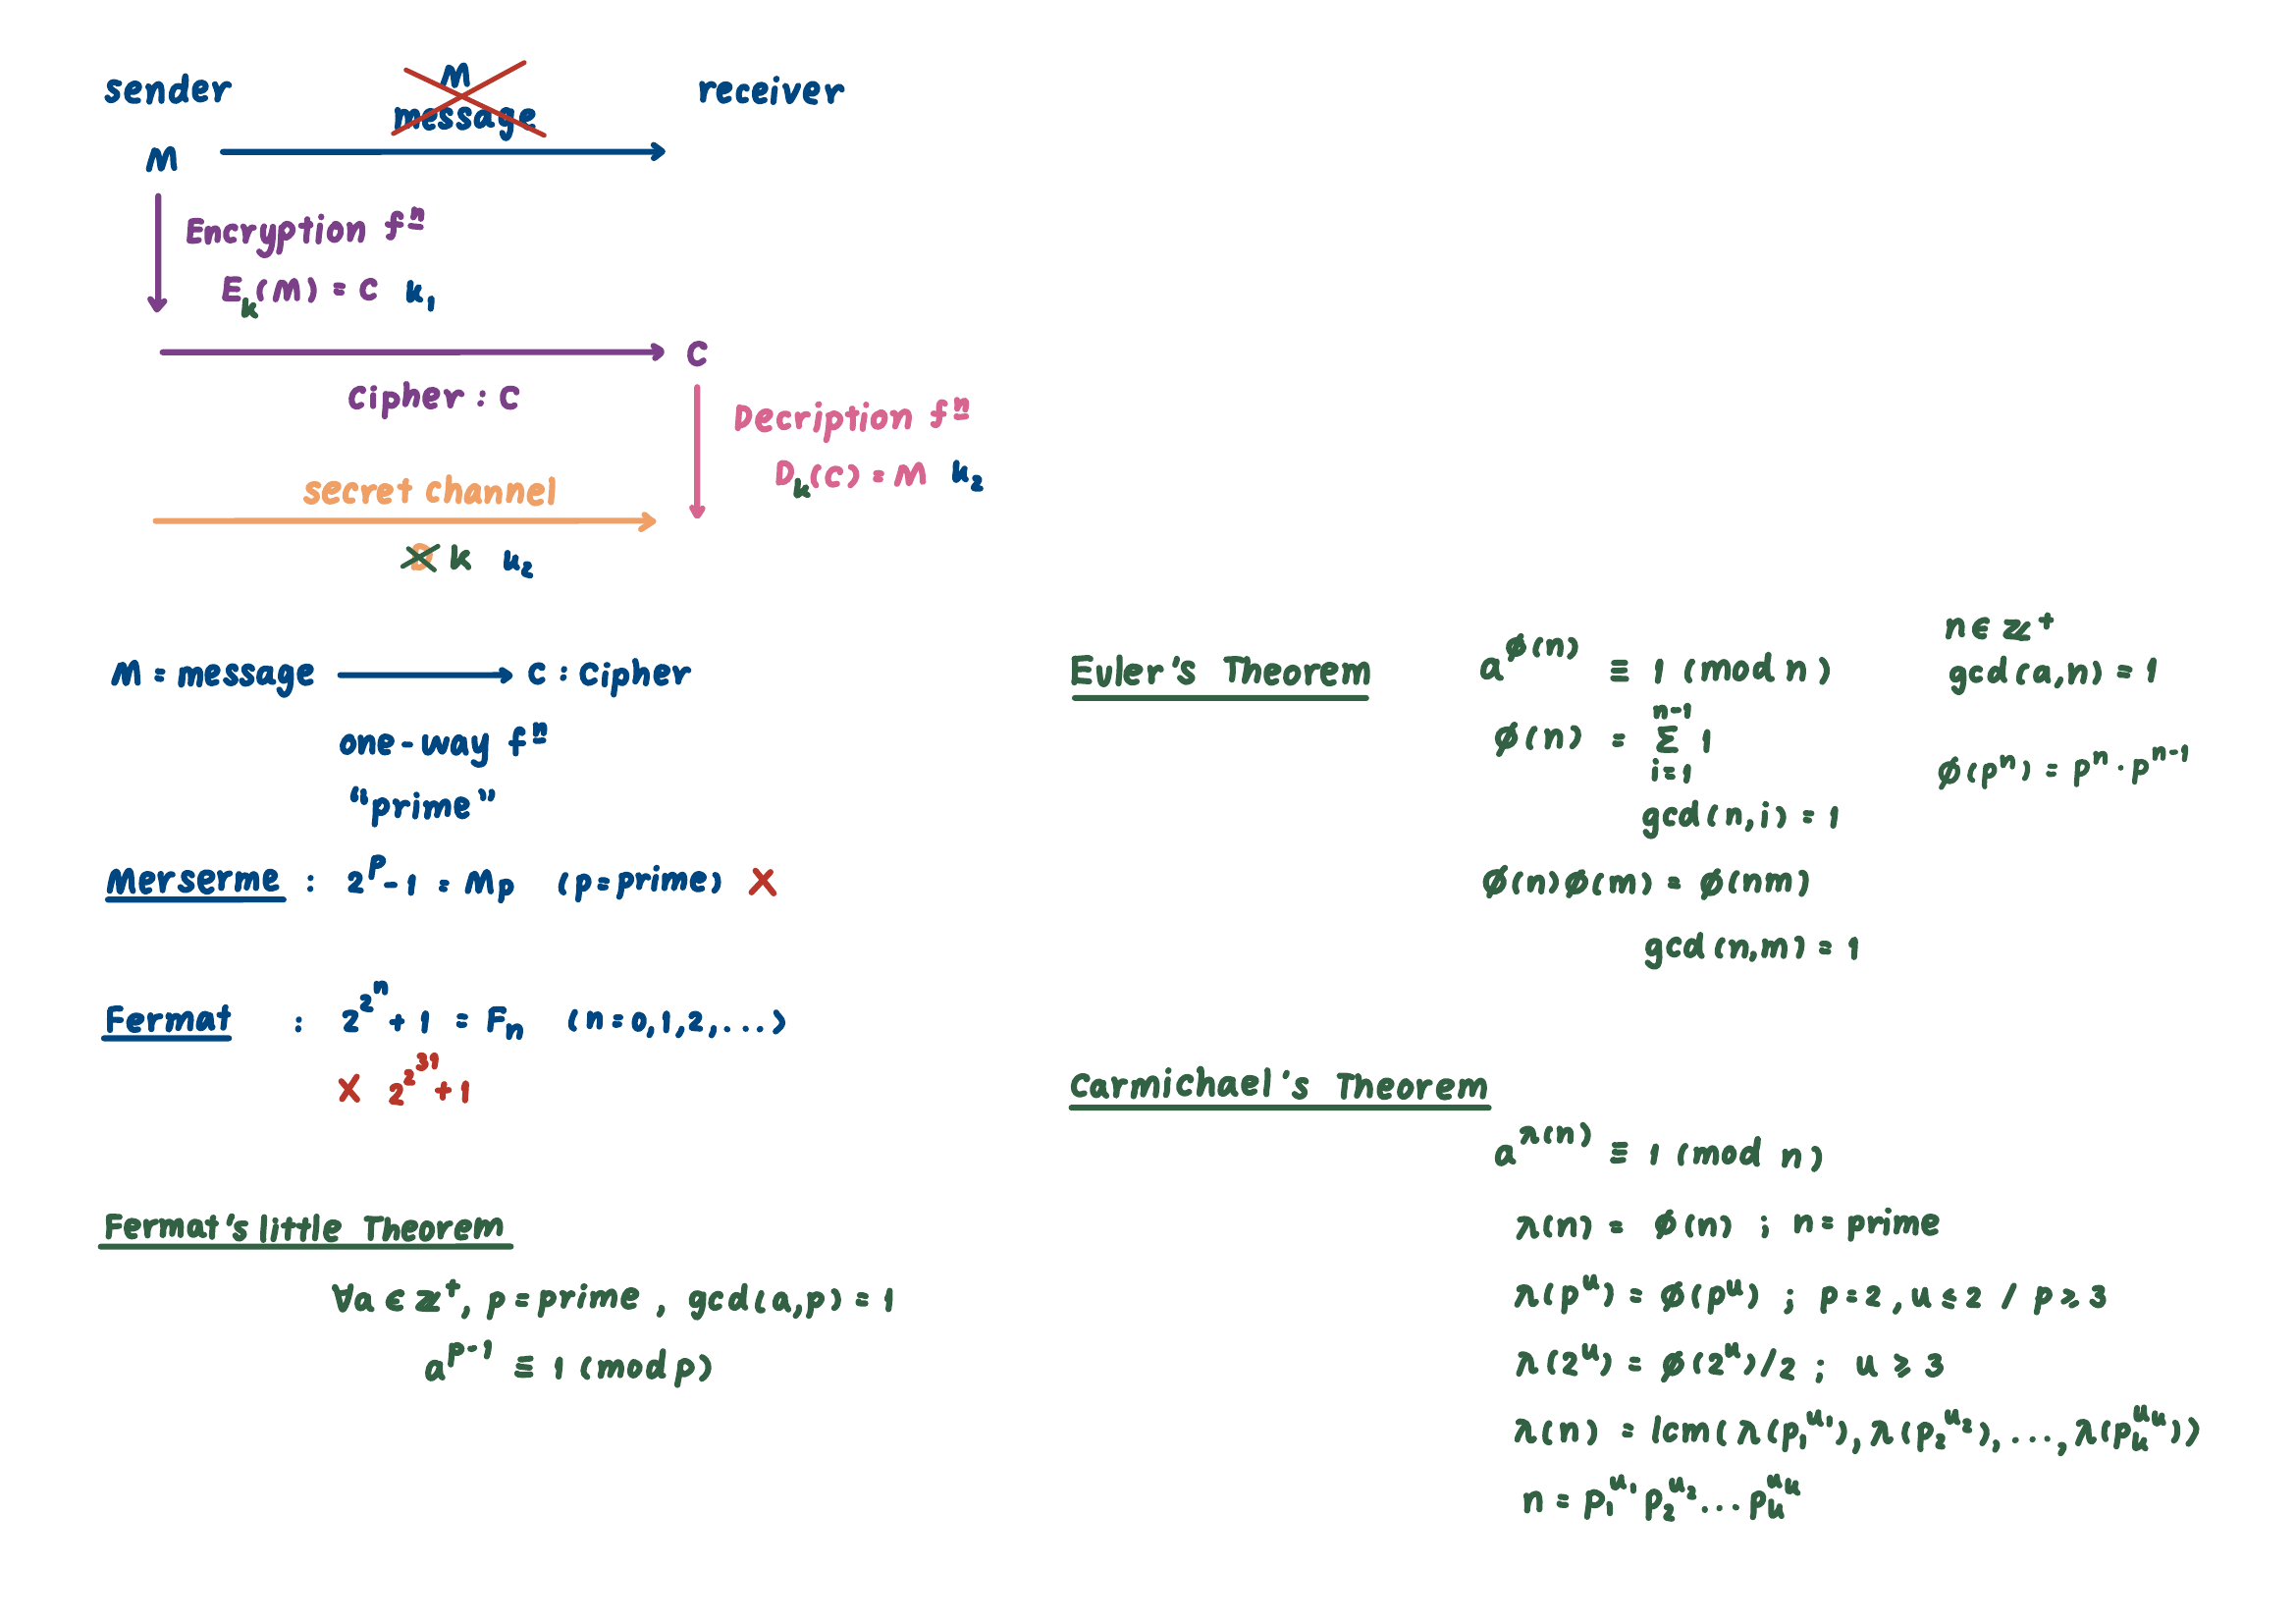 sender
M
message
receiver
M
Encryption fⁿ
E_k(M) = C k₁
C
Cipher : C
Decription fⁿ
D_k(C) = M k₂
secret channel
D k k₂
M = message → C : Cipher
one-way fⁿ
"prime"
Merserme : 2^p - 1 = Mp (p = prime) X
Fermat : 2^2^n + 1 = Fn (n = 0, 1, 2, ...)
X 2^2^31 + 1
Fermat's little Theorem
∀a ∈ ℤ⁺, p = prime, gcd(a,p) = 1
a^(p-1) ≡ 1 (mod p)
Euler's Theorem
a^ø(n) ≡ 1 (mod n)
n ∈ ℤ⁺
gcd(a,n) = 1
ø(n) = Σ 1
n-1
i=1
gcd(n,i) = 1
ø(pⁿ) = pⁿ · pⁿ⁻¹
ø(n)ø(m) = ø(nm)
gcd(n,m) = 1
Carmichael's Theorem
a^λ(n) ≡ 1 (mod n)
λ(n) = ø(n) ; n = prime
λ(p^k) = ø(p^k) ; p = 2, k ≤ 2 / p ≥ 3
λ(2^k) = ø(2^k)/2 ; k ≥ 3
λ(n) = lcm(λ(p₁^k₁), λ(p₂^k₂), ..., λ(p_k^k_k))
n = p₁^k₁ p₂^k₂ ... p_k^k_k